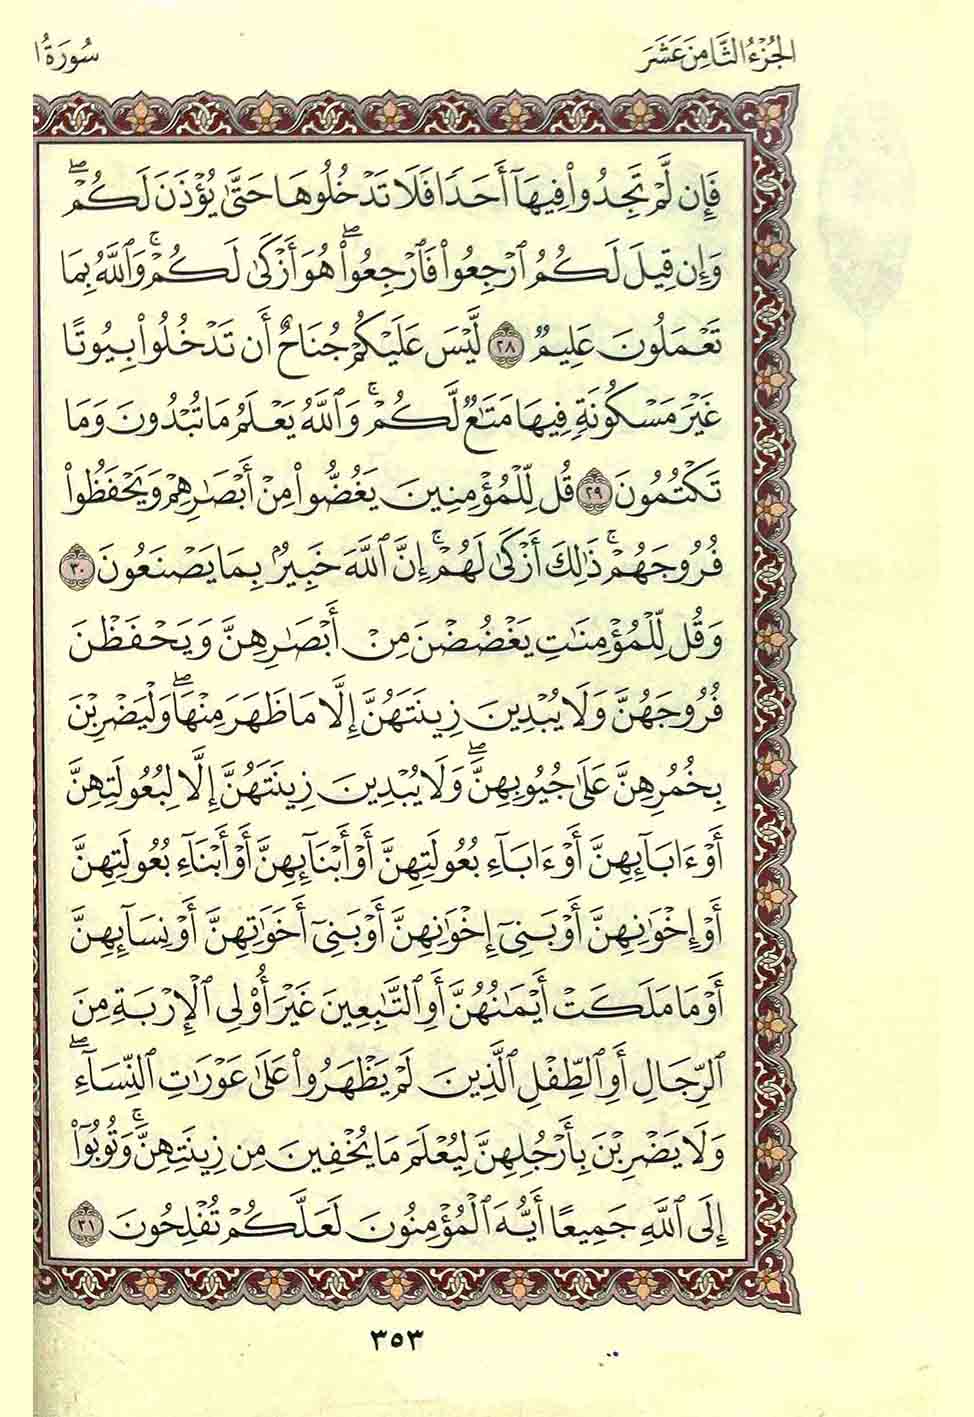 الجُزْءُ الثَّامِنَ عَشَرَ
سُورَةُ ا
فَإِن لَّمْ تَجِدُوا۟ فِيهَآ أَحَدًا فَلَا تَدْخُلُوهَا حَتَّىٰ يُؤْذَنَ لَكُمْ ۖ
وَإِن قِيلَ لَكُمُ ٱرْجِعُوا۟ فَٱرْجِعُوا۟ ۖ هُوَ أَزْكَىٰ لَكُمْ ۚ وَٱللَّهُ بِمَا
تَعْمَلُونَ عَلِيمٌ ٢٨ لَّيْسَ عَلَيْكُمْ جُنَاحٌ أَن تَدْخُلُوا۟ بُيُوتًا
غَيْرَ مَسْكُونَةٍ فِيهَا مَتَٰعٌ لَّكُمْ ۚ وَٱللَّهُ يَعْلَمُ مَا تُبْدُونَ وَمَا
تَكْتُمُونَ ٢٩ قُل لِّلْمُؤْمِنِينَ يَغُضُّوا۟ مِنْ أَبْصَٰرِهِمْ وَيَحْفَظُوا۟
فُرُوجَهُمْ ۚ ذَٰلِكَ أَزْكَىٰ لَهُمْ ۚ إِنَّ ٱللَّهَ خَبِيرٌۢ بِمَا يَصْنَعُونَ ٣٠
وَقُل لِّلْمُؤْمِنَٰتِ يَغْضُضْنَ مِنْ أَبْصَٰرِهِنَّ وَيَحْفَظْنَ
فُرُوجَهُنَّ وَلَا يُبْدِينَ زِينَتَهُنَّ إِلَّا مَا ظَهَرَ مِنْهَا ۖ وَلْيَضْرِبْنَ
بِخُمُرِهِنَّ عَلَىٰ جُيُوبِهِنَّ ۖ وَلَا يُبْدِينَ زِينَتَهُنَّ إِلَّا لِبُعُولَتِهِنَّ
أَوْ ءَابَآئِهِنَّ أَوْ ءَابَآءِ بُعُولَتِهِنَّ أَوْ أَبْنَآئِهِنَّ أَوْ أَبْنَآءِ بُعُولَتِهِنَّ
أَوْ إِخْوَٰنِهِنَّ أَوْ بَنِىٓ إِخْوَٰنِهِنَّ أَوْ بَنِىٓ أَخَوَٰتِهِنَّ أَوْ نِسَآئِهِنَّ
أَوْ مَا مَلَكَتْ أَيْمَٰنُهُنَّ أَوِ ٱلتَّٰبِعِينَ غَيْرِ أُو۟لِى ٱلْإِرْبَةِ مِنَ
ٱلرِّجَالِ أَوِ ٱلطِّفْلِ ٱلَّذِينَ لَمْ يَظْهَرُوا۟ عَلَىٰ عَوْرَٰتِ ٱلنِّسَآءِ ۖ
وَلَا يَضْرِبْنَ بِأَرْجُلِهِنَّ لِيُعْلَمَ مَا يُخْفِينَ مِن زِينَتِهِنَّ ۚ وَتُوبُوٓا۟
إِلَى ٱللَّهِ جَمِيعًا أَيُّهَ ٱلْمُؤْمِنُونَ لَعَلَّكُمْ تُفْلِحُونَ ٣١
٣٥٣